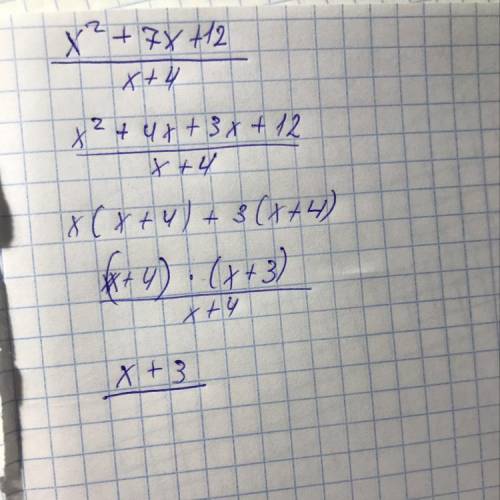 x² + 7x + 12
x + 4
x² + 4x + 3x + 12
x + 4
x(x+4) + 3(x+4)
(x+4) · (x+3)
x+4
x + 3